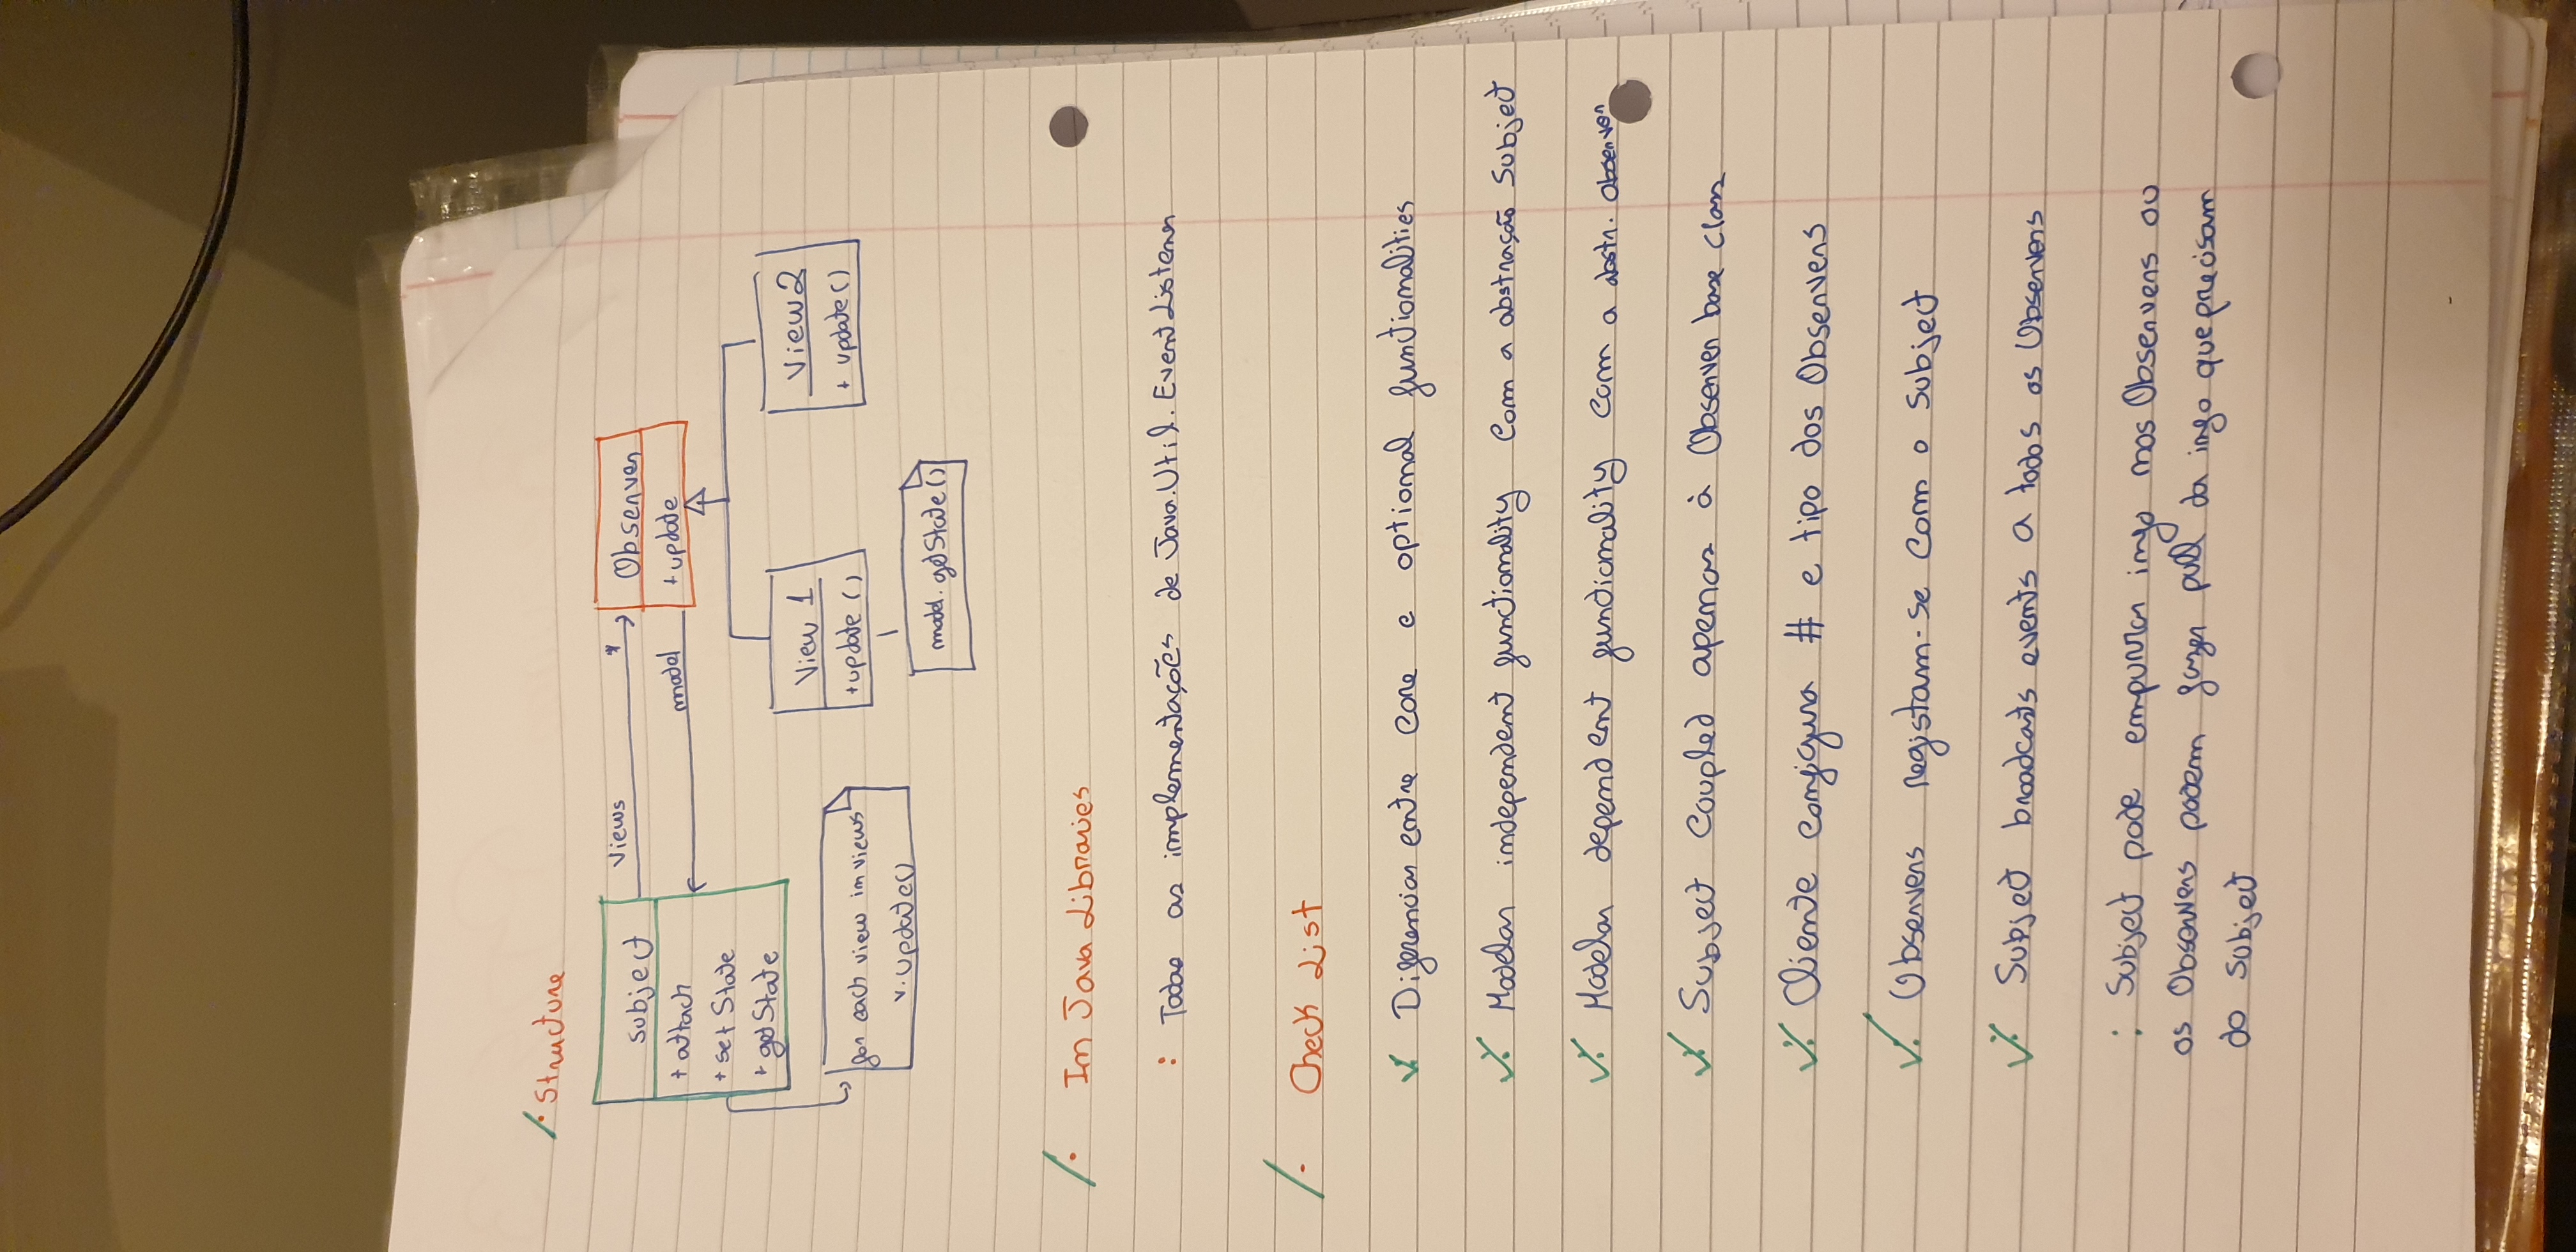 Structure
Views *
Subject
Observer
+ attach
+ update
model
+ set State
+ getState
View 1
View 2
+ update ()
+ update ()
for each view in views
v. update()
model. getState()
In Java Libraries
: Todas as implementações de Java.Util. EventListener
Check List
Diferenciar entre core e optional functionalities
Modelar independent functionality com a abstração Subject
Modelar dependent functionality com a abstr. Observer
Subject Coupled apenas à Observer base class
Cliente configura # e tipo dos Observers
Observers registam-se com o Subject
Subject broadcasts events a todos os Observers
: Subject pode empurrar info nos Observers ou
os Observers podem fazer pull da info que precisam
do Subject